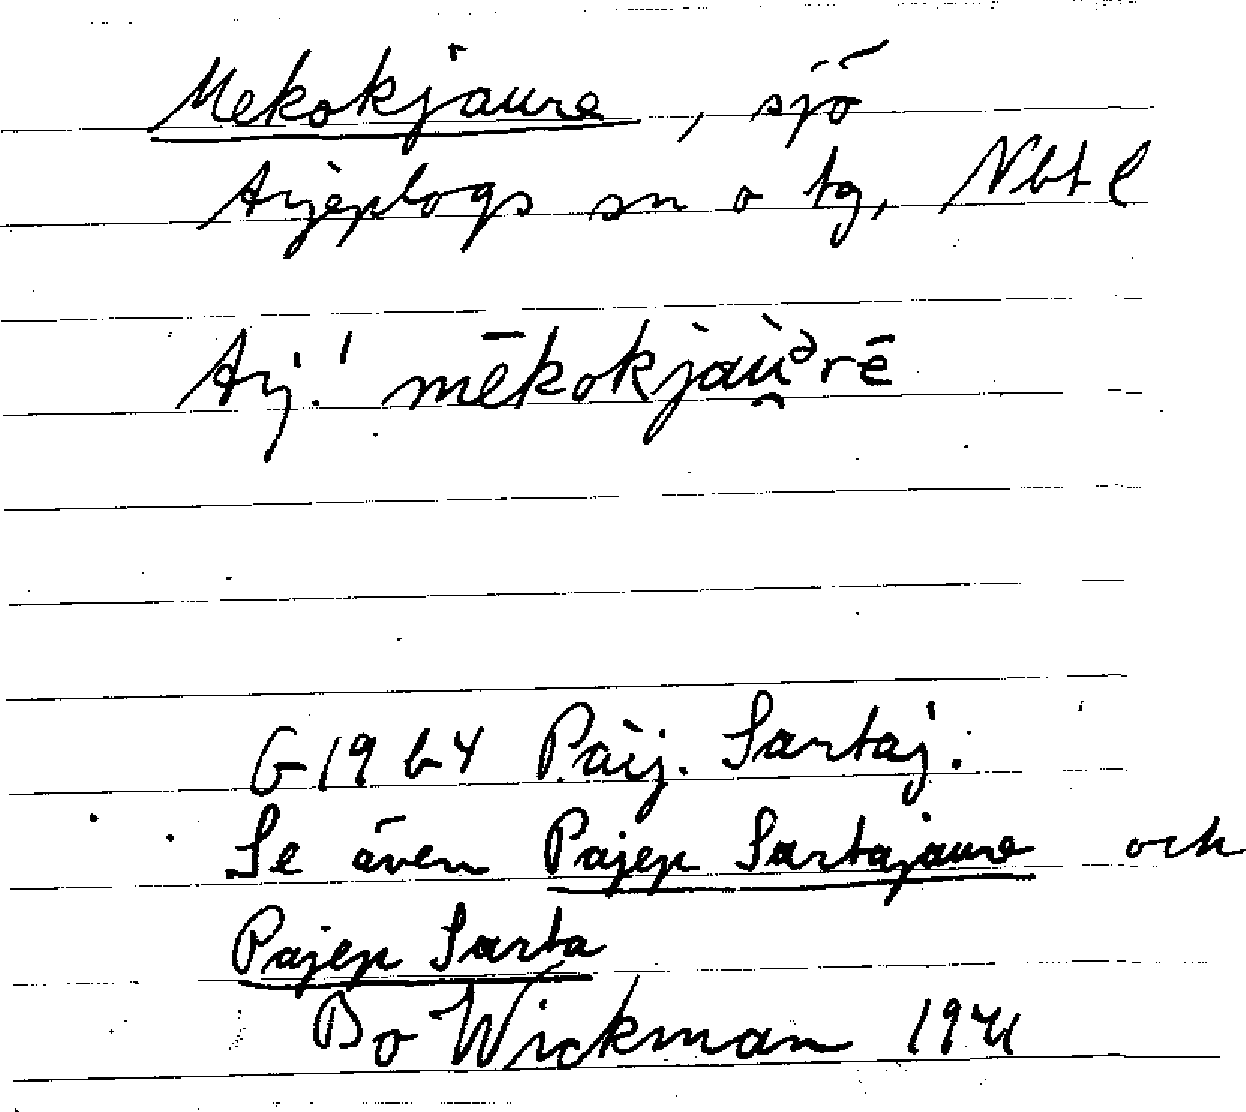 Mekokjaure, sjö
Arjeplogs sn o tg, Nbt l
Arj.! mēkokjau̯ərē
G 1964 Päij. Sartaj.
Se även Pajep Sartajaure och
Pajep Sarta
Bo Wickman